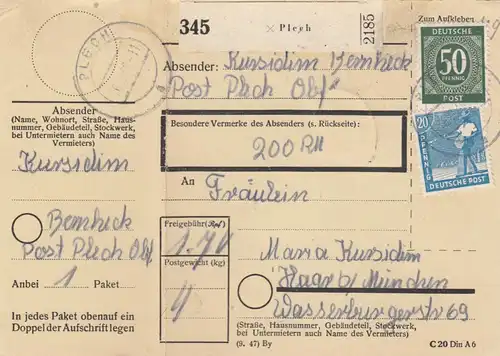 345
× Plech
2185
Zum Aufkleben
PLECH
a
Absender: Kursidim Bernheck
Post Plech Obf
DEUTSCHE
50
PFENNIG
POST
20
PFENNIG
DEUTSCHE POST
Absender
(Name, Wohnort, Straße, Haus-
nummer, Gebäudeteil, Stockwerk,
bei Untermietern auch Name des
Vermieters)
Kursidim
Bernheck
Post Plech Obf
Anbei 1 Paket
In jedes Paket obenauf ein
Doppel der Aufschrift legen
Besondere Vermerke des Absenders (s. Rückseite):
200 RM
An
Fräulein
Freigebühr (Rpf)
1.70
Postgewicht (kg)
4
Maria Kursidim
Haar b/ München
Wasserburgerstr 69
(Straße, Hausnummer, Gebäudeteil, Stockwerk,
bei Untermietern auch Name des Vermieters)
(9. 47) By
C 20 Din A 6